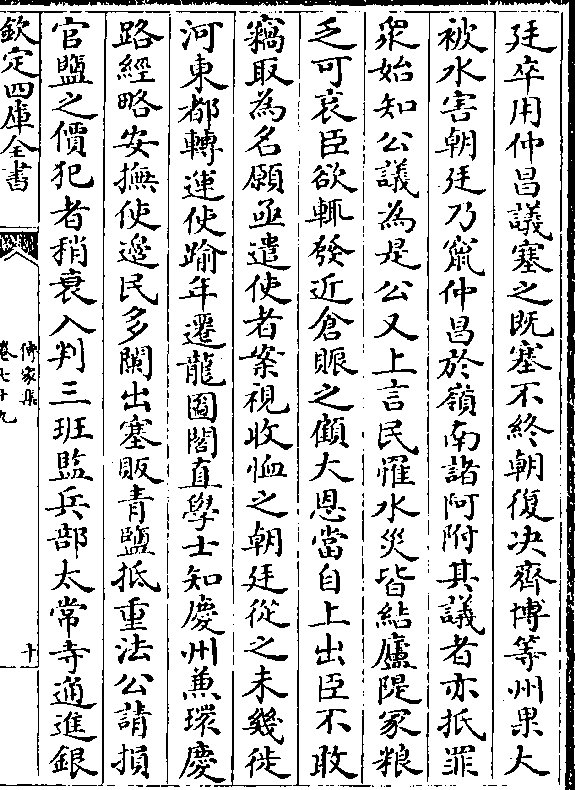 廷卒用仲昌議塞之既塞不終朝復决齊博等州果大
被水害朝廷乃竄仲昌於嶺南諸阿附其議者亦抵罪
衆始知公議為是公又上言民罹水災皆結廬隄冢粮
乏可哀臣欲輒發近倉賑之顧大恩當自上出臣不敢
竊取為名願亟遣使者案視收恤之朝廷從之未幾徙
河東都轉運使踰年遷龍圖閣直學士知慶州兼環慶
路經略安撫使邊民多闌出塞販青鹽抵重法公請損
官鹽之價犯者稍衰入判三班監兵部太常寺通進銀
欽定四庫全書
傳家集
卷七十九
十